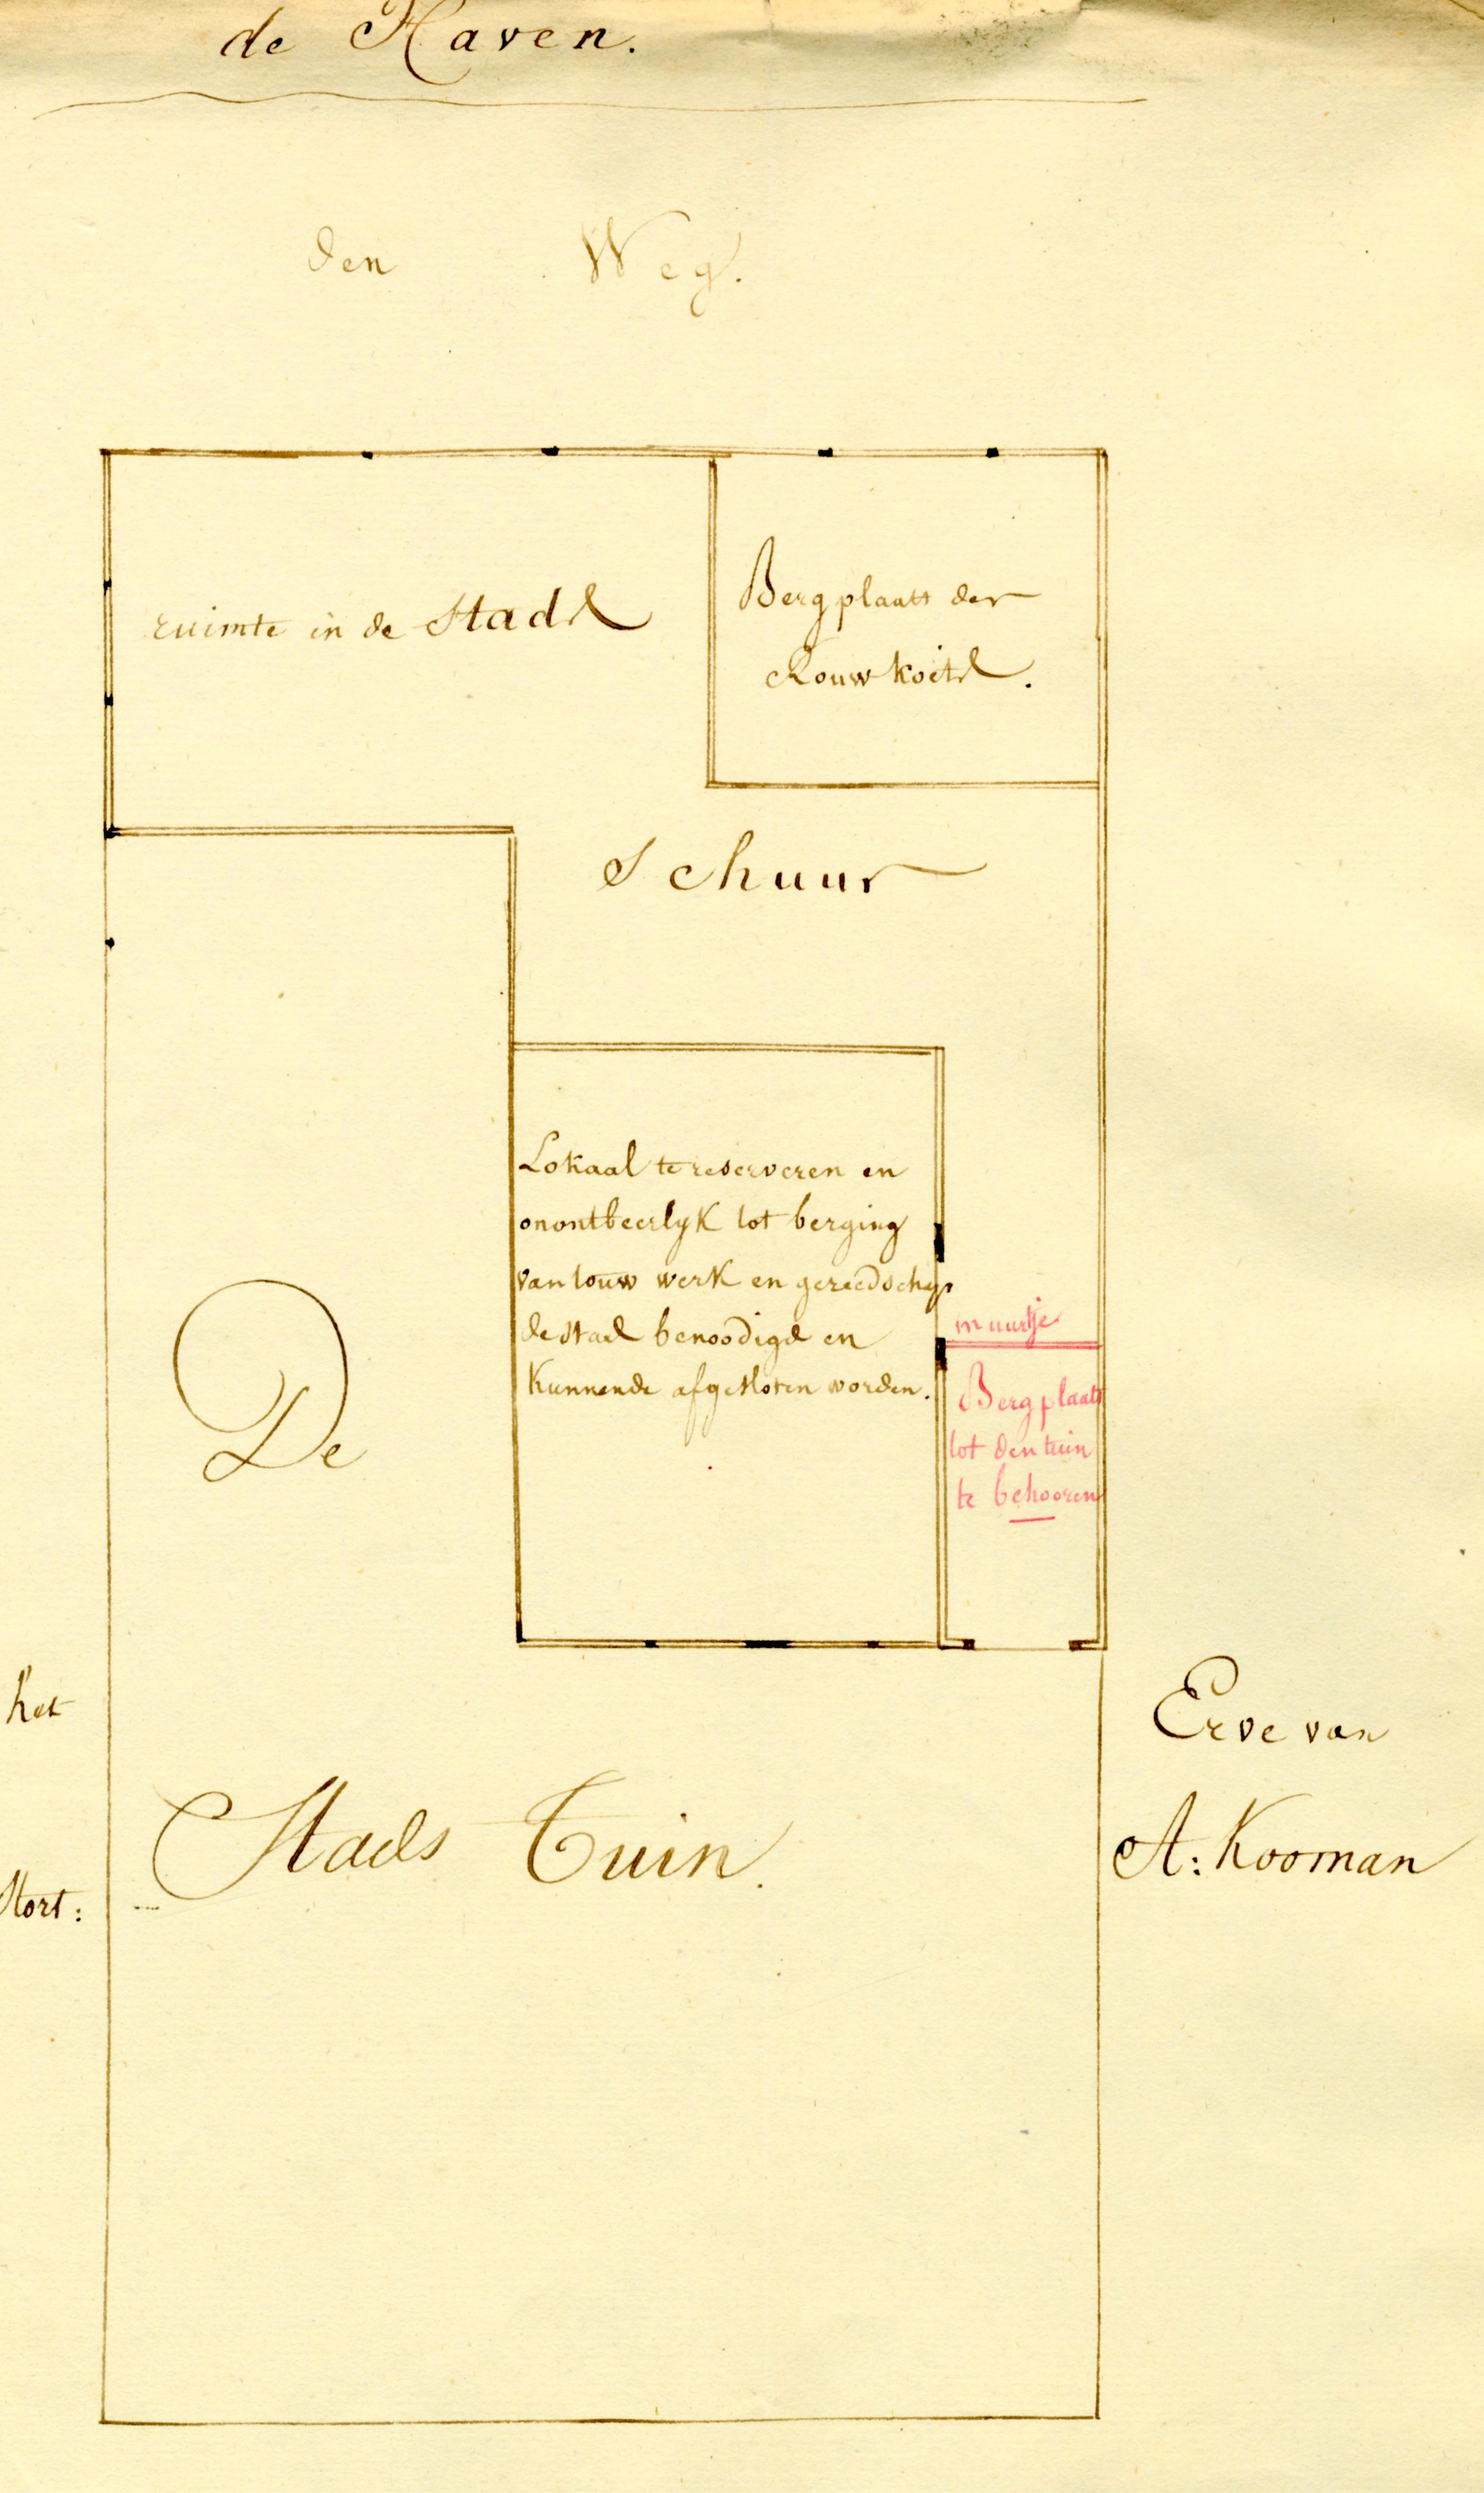 de Haven.
den Weg.
ruimte in de Stads
Bergplaats der
Rouwkoets.
Schuur
Lokaal te reserveren en
onontbeerlyk tot berging
van touw werk en gereedschap
de stad benoodigd en
kunnende afgesloten worden.
muurtje
Bergplaats
tot den tuin
te behooren
De
Stads Tuin.
het
Stort:
Erve van
A: Kooman